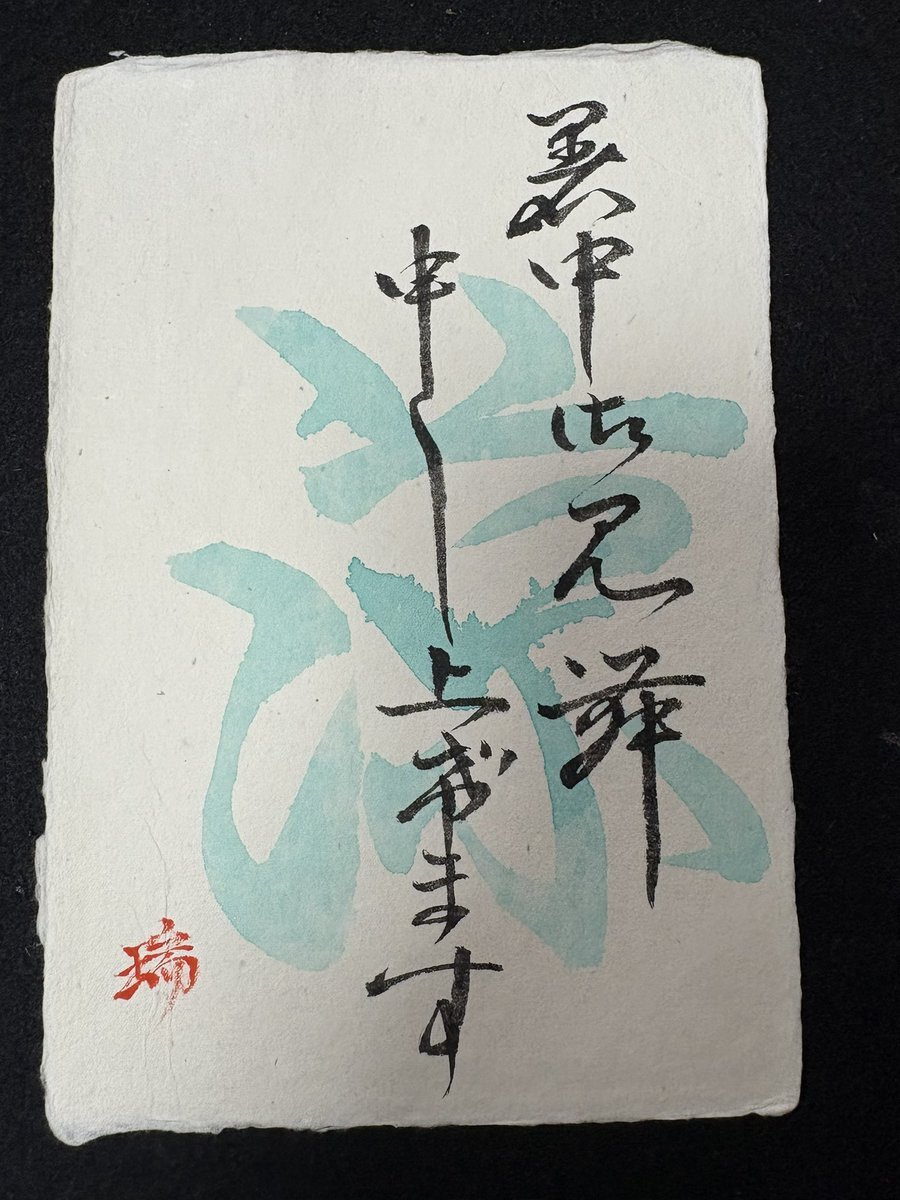 暑中御見舞
申し上げます
涼
瑞